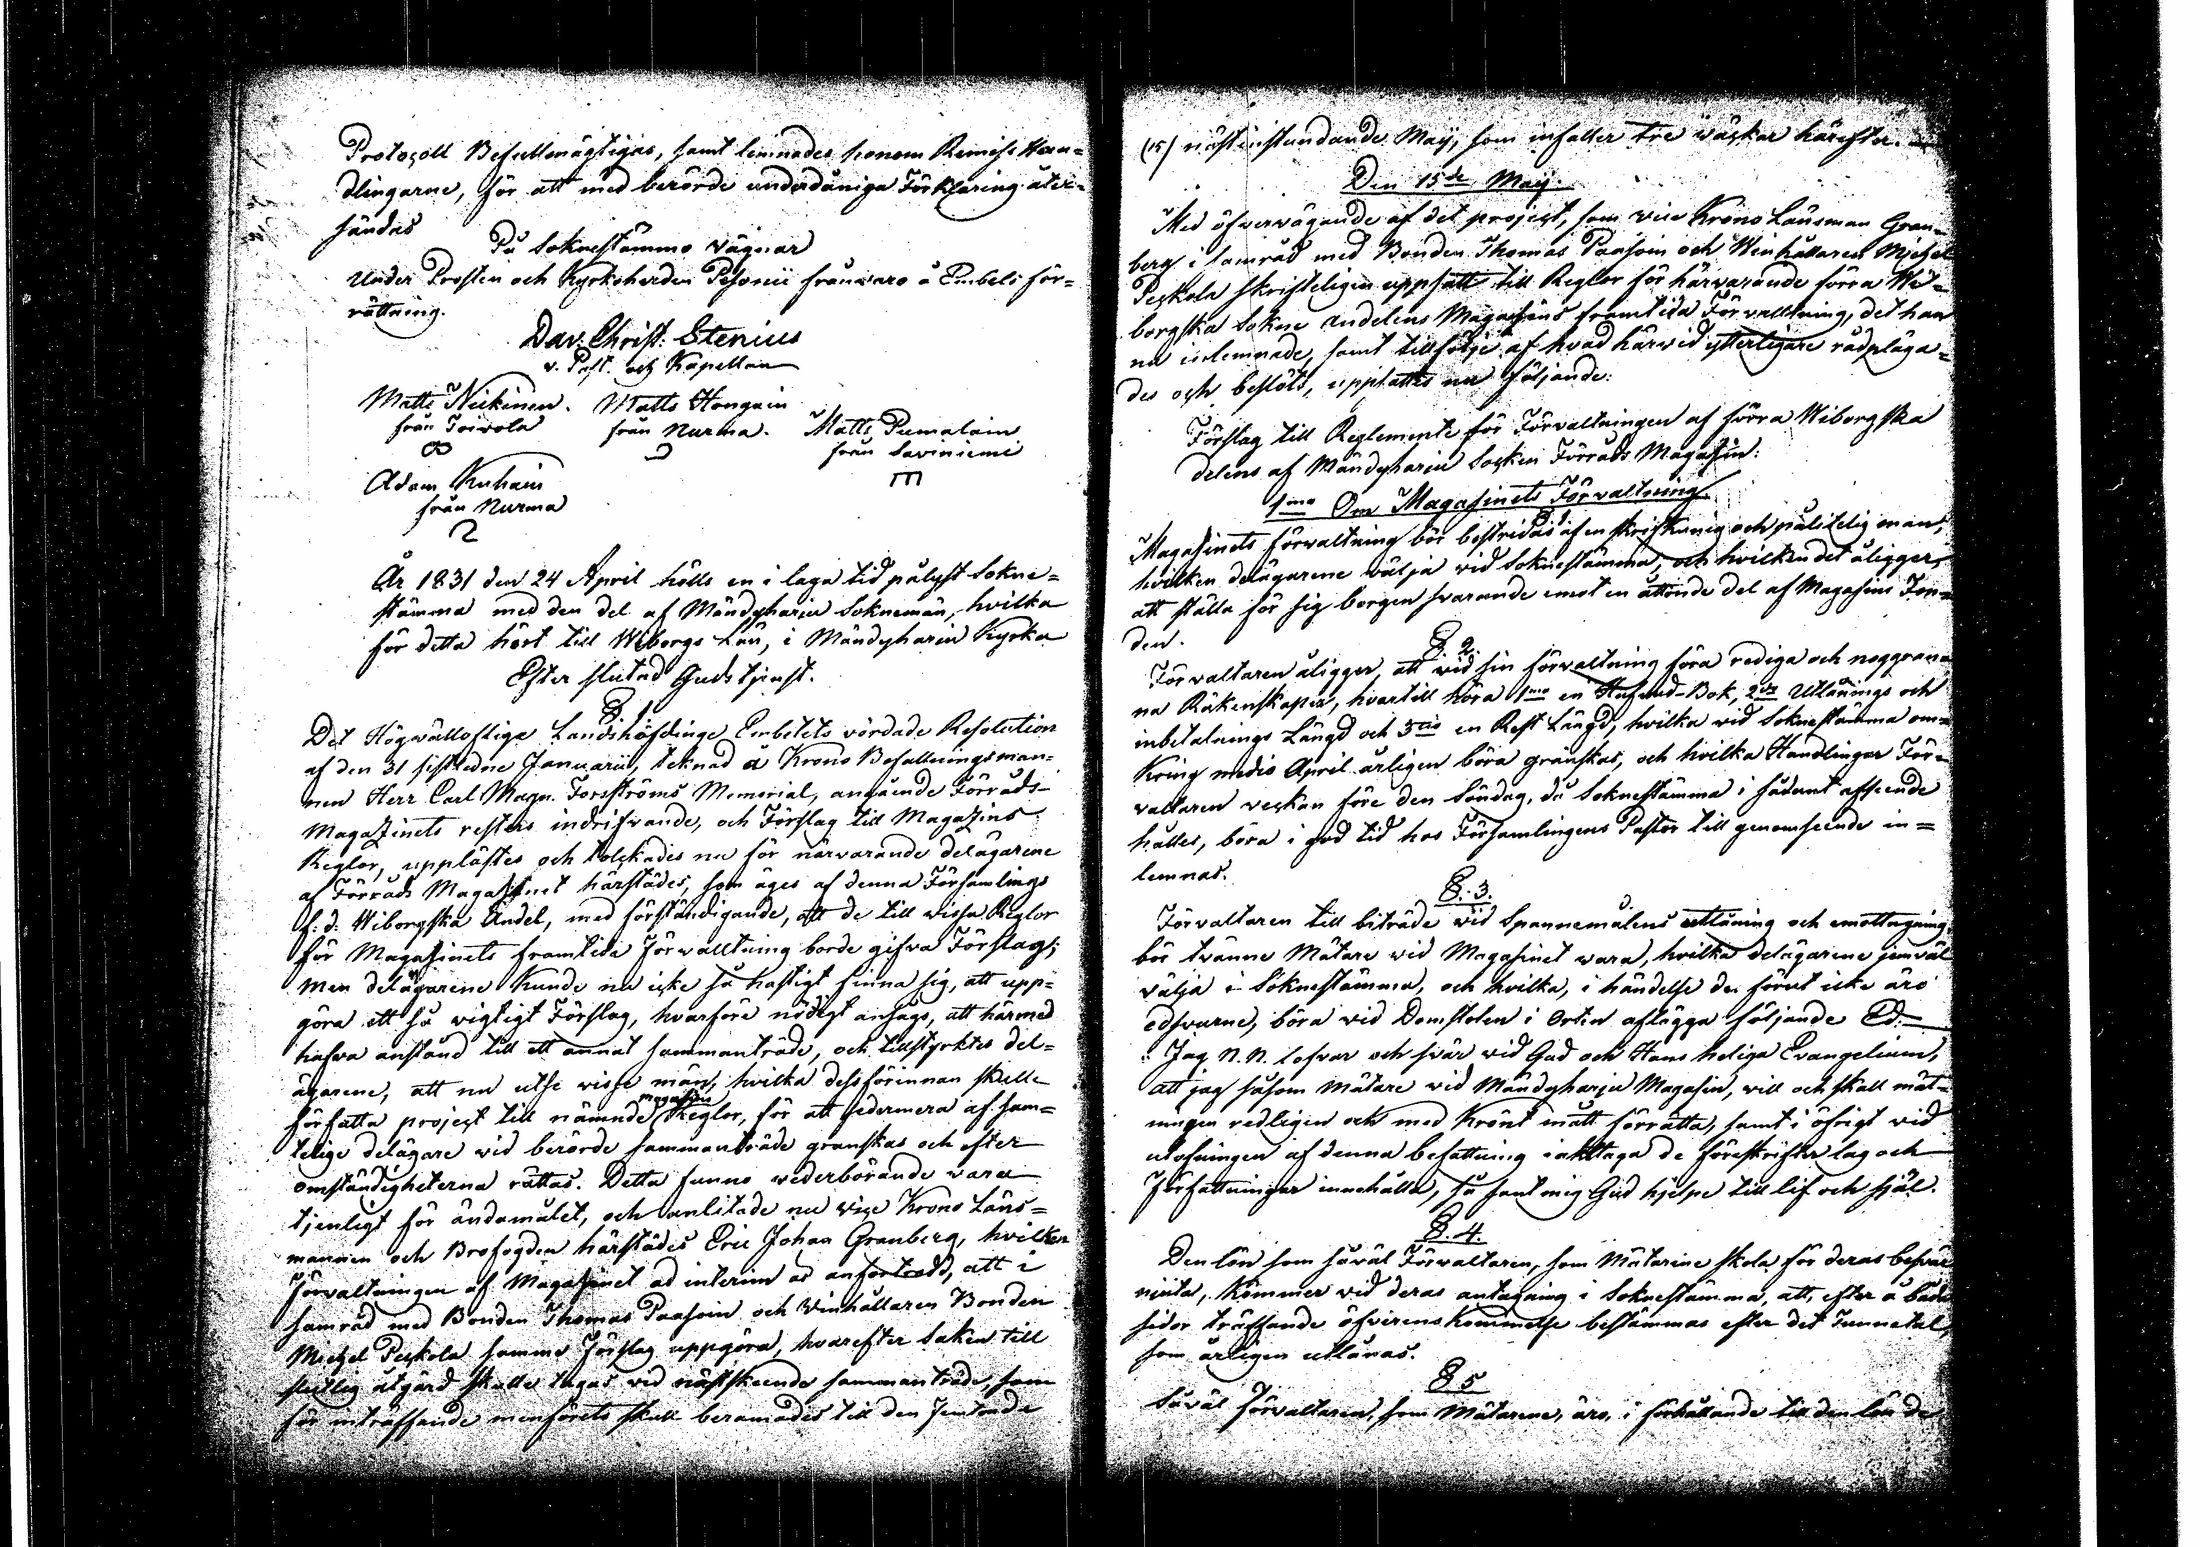 Protocoll Befullmägtigas, samt lemnades honom Remiss Han=
dlingarne, för att med berörde underdåniga Förklaring åter=
sändas
På Soknestämmo vägnar
Under Prosten och Kyrkoherden Pesonii frånvaro å Embets för=
rättning.
Dav: Christ: Stenius
v. Past. och Kapellan
Matts Niekinen. Matts Hongain
från Toivola från Nurma. Matts Pumalain
från Saviniemi
Adam Kuhain
från Nurma
År 1831 den 24 April hölls en i laga tid pålyst Sokne=
stämma med den del af Mändyharju Soknemän, hvilka
för detta hört till Wiborgs Län, i Mändyharju Kyrka
Efter slutad Gudstjenst.
§ 1
Det Högvälloflige Landshöfdinge Embetets vördade Resolution
af den 31 sistledne Januarii, teknad å Krono Befallningsman=
nen Herr Carl Magn. Forsströms Memorial, angående Förråds-
Magazinets resters indrifvande, och Förslag till Magazins
Reglor, upplästes och tolckades nu för närvarande delägarene
af Förråds Magasinet härstädes, som äges af denna Församlings
f. d. Wiborgska Andel, med förständigande, att de till vissa Reglor
för Magasinets framtida Förvalltning borde gifva Förslag;
men delägarene kunde nu icke så hastigt finna sig, att upp=
göra ett så vigtigt Förslag, hvarföre nödigt ansågs, att härmed
hafva anstånd till ett annat sammanträde, och tillstyrktes del=
ägarene, att nu utse visse män, hvilka dessförinnan skulle
författa project till nämnde magasins Reglor, för att sedermera af sam=
telige delägare vid berörde sammanträde granskas och efter
omständigheterna rättas. Detta funno vederbörande vara
tjenligt för ändamålet, och anlitade nu vice Krono Läns=
mannen och Brofogden härstädes Eric Johan Granberg, hvilken
Förvaltningen af Magasinet ad interim är anförtrodd, att i
samråd med Bonden Thomas Paasoin och Winhållaren Bonden
Michel Peskola samma Förslag uppgöra, hvarefter saken till
slutlig åtgärd skulle tagas vid nästskeende sammanträde, som
för inträffande menförets skull beramades till den femtonde
(15) nästinstundande Maij, som infaller tre väckor härefter.
Den 15de Maij.
Med öfvervägande af det project, som vice Krono Länsman Gran=
berg i samråd med Bonden Thomas Paasoin och Winhållaren Michel
Peskola skrifteligen uppsatt till Reglor för härvarande förra Wi=
borgska Sokne andelens Magasins framtida Förvalltning, det han
nu inlemnade, samt tillfölje af hvad härvid ytterligare rådpläga=
des och beslöts, upplattes nu följande:
Förslag till Reglemente för Förvaltningen af förra Wiborgska
delens af Mändyharju Socken Förråds Magasin:
1mo Om Magasinets Förvaltning
Magasinets förvaltning bör bestridas af en skrifkunnig och pålitelig man,
hvilken delägarene välja vid Soknestämma, och hvilken det åligger,
att ställa för sig borgen svarande emot en åttonde del af Magasins Fon=
den.
§ 2.
Förvaltaren åligger, att vid sin förvaltning föra rediga och noggran=
na Räkenskaper, hvartill höra 1mo en Hufvud-Bok, 2do Utlånings och
inbetalnings Längd och 3tio en Rest Längd, hvilka vid Soknestämma om=
kring medio April årligen böra granskas, och hvilka Handlingar För=
valtaren veckan före den Söndag, då Soknestämma i sådant afseende
hålles, böra i god tid hos Församlingens Pastor till genomseende in=
lemnas.
§. 3.
Förvaltaren till biträde vid Spannemålens utlåning och emottagning
bör tvänne Mätare vid Magasinet vara, hvilka delägarene jemväl
välja i Soknestämma, och hvilka, i händelse de förut icke äro
edsvurne, böra vid Domstolen i Orten aflägga följande Ed:
: Jag N. N. lofvar och svär vid Gud och Hans heliga Evangelium,
att jag såsom mätare vid Mändyharju Magasin, vill och skall mät=
ningen redligen och med Krönt mått förrätta, samt i öfrigt vid
utöfningen af denna befattning iakttaga de föreskrifter lag och
Författningar innehålla, så sant mig Gud hjelpe till lif och själ.
§. 4.
Den lön som såväl Förvaltaren, som Mätarene skola för deras besvär
njuta, kommer vid deras antagning i Soknestämma, att, efter å båda
sidor träffande öfverenskommelse bestämmas efter det Tunnetal,
som årligen utlånas.
§ 5
Såväl Förvaltaren, som Mätarene, äro, i förhållande till den lön de